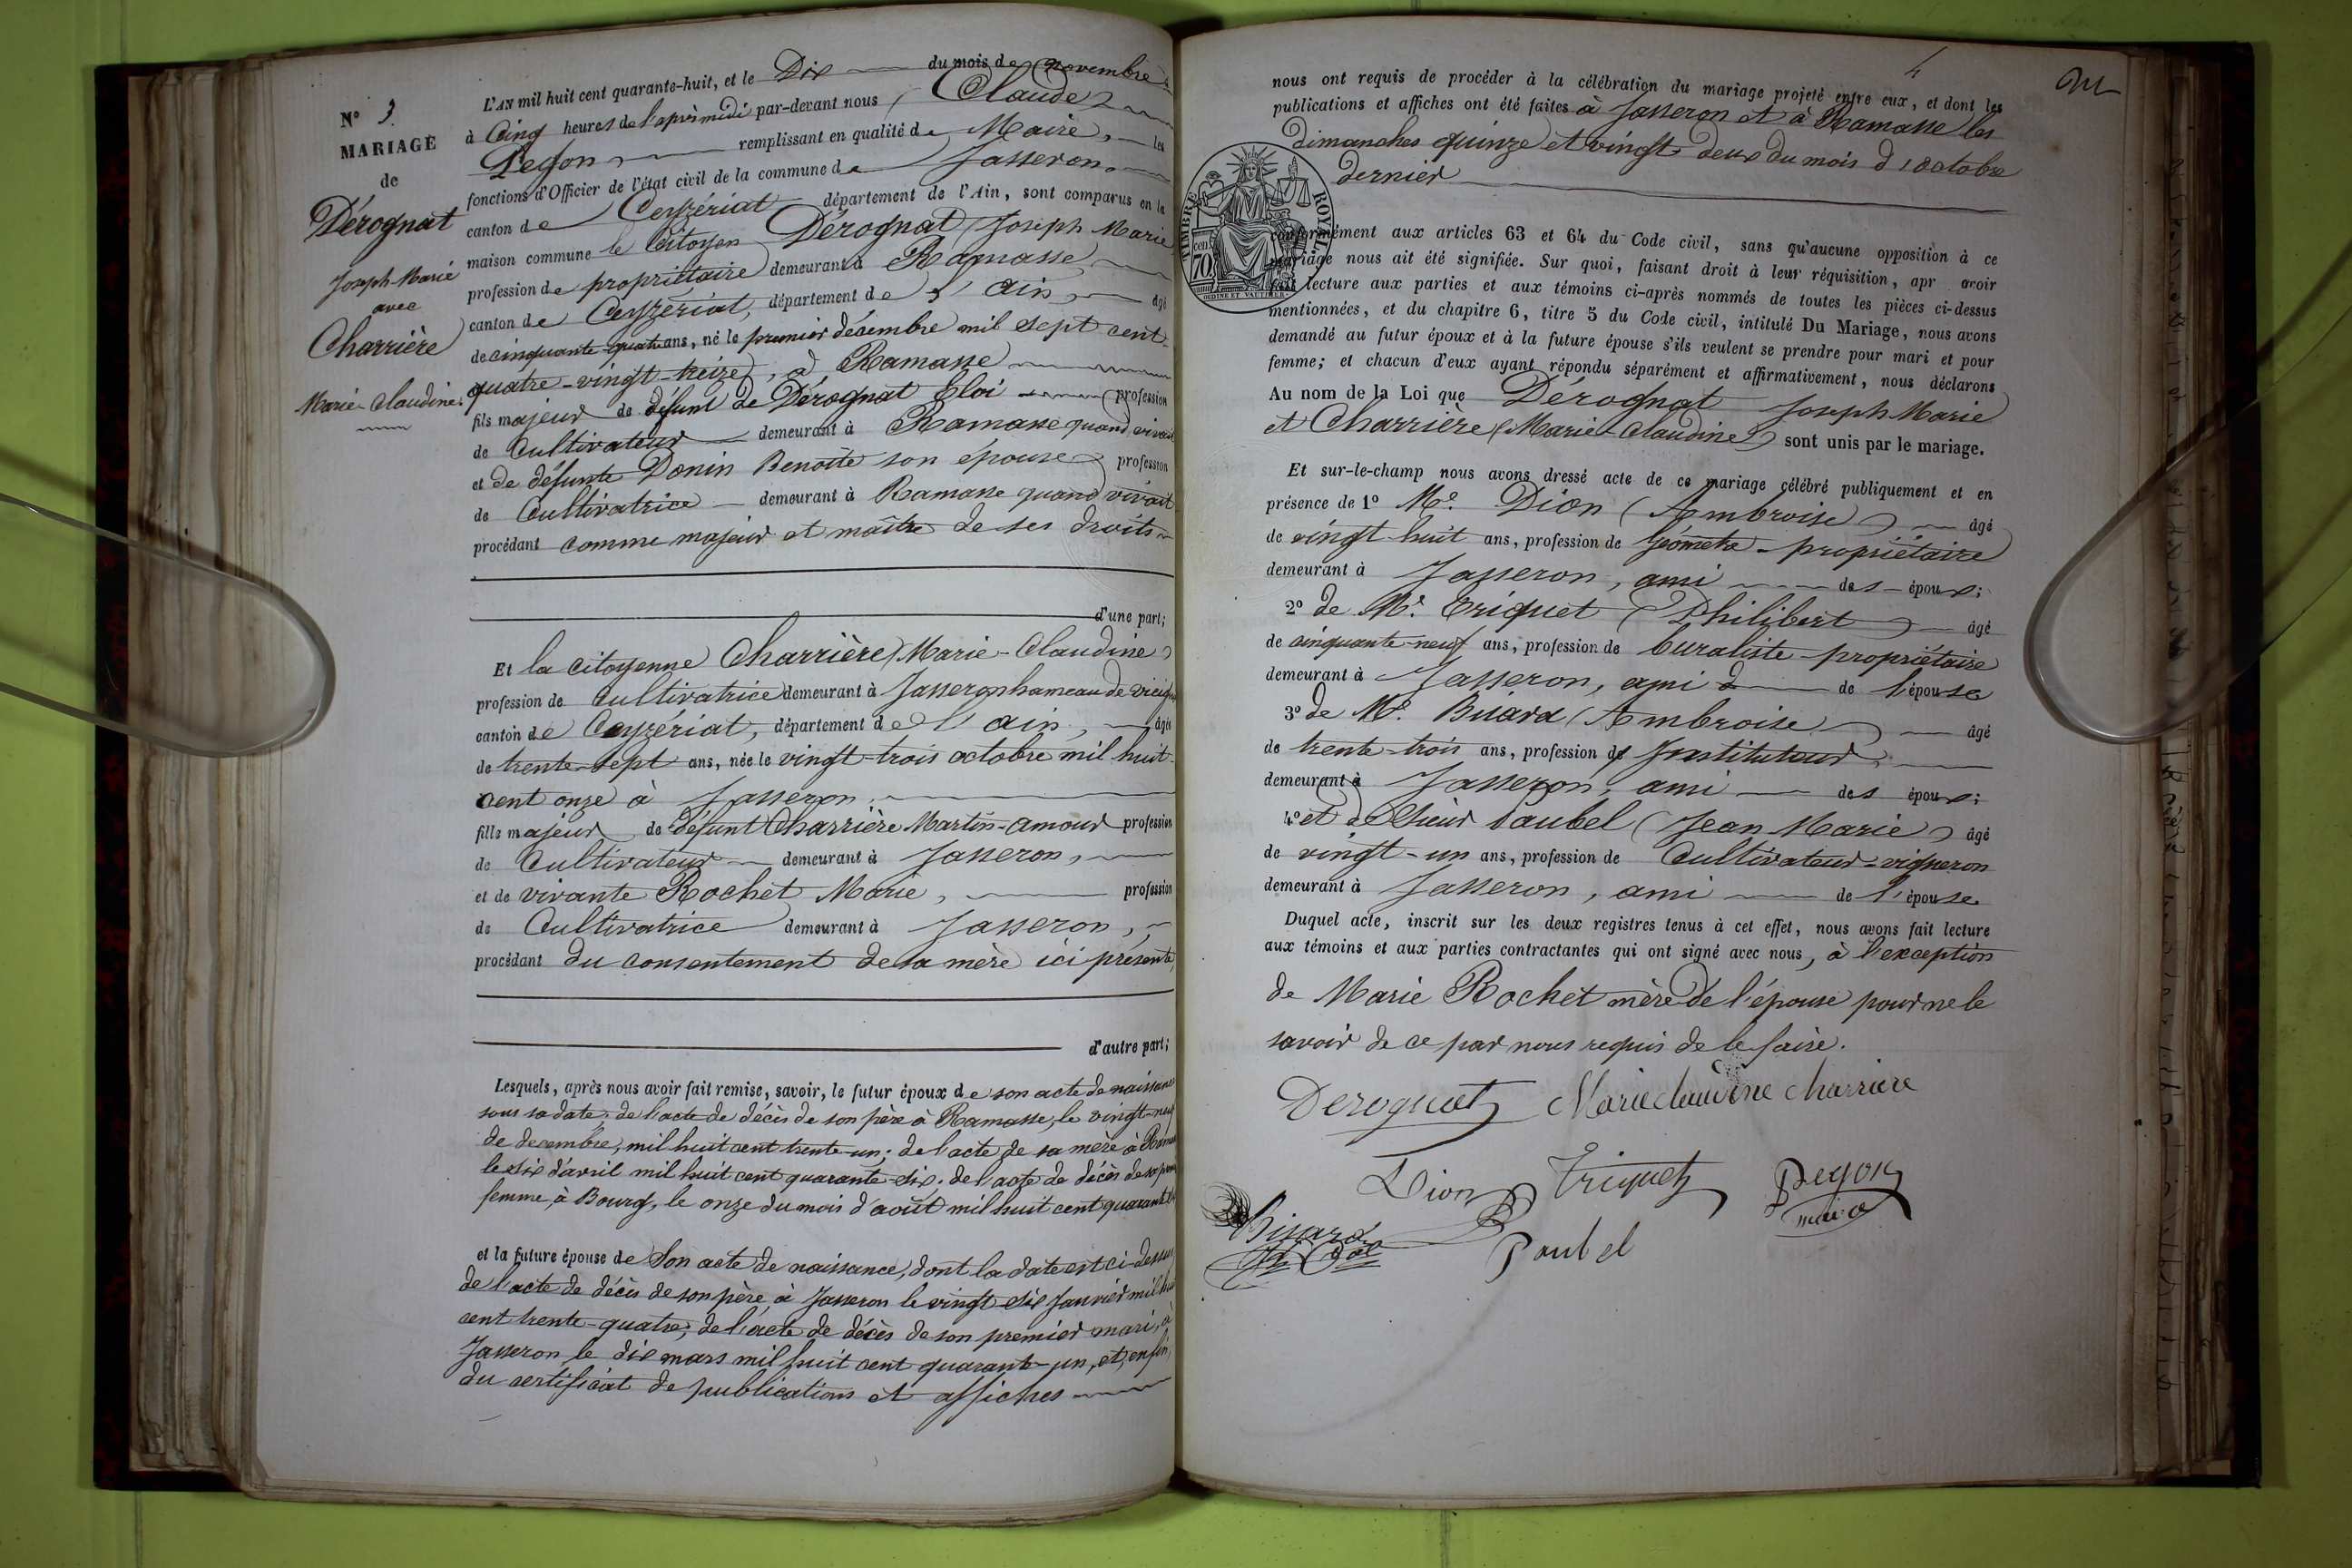 N° 3.
MARIAGE
de
Dérognat
Joseph-Marie
avec
Charrière
Marie-Claudine.
L'AN mil huit cent quarante-huit, et le Dix du mois de novembre
à Cinq heures de l'aprèsmidi par-devant nous Claude
Peyon remplissant en qualité de Maire, les
fonctions d'Officier de l'état civil de la commune de Jasseron.
canton de Ceyzériat département de l'Ain, sont comparus en la
maison commune le Citoyen Dérognat (Joseph Marie
profession de propriétaire demeurant à Ramasse
canton de Ceyzériat, département de l'ain, âgé
de cinquante-quatre ans, né le premier décembre mil sept cent
quatre-vingt-treize, à Ramasse
fils majeur de défunt de Dérognat Eloi profession
de Cultivateur demeurant à Ramasse quand vivait
et de défunte Donin Benoîte son épouse profession
de Cultivatrice demeurant à Ramasse quand vivait
procédant comme majeur et maître de ses droits
d'une part;
Et la citoyenne Charrière (Marie-Claudine)
profession de Cultivatrice demeurant à Jasseron hameau de
canton de Ceyzériat, département de l'ain, âgée
de trente-sept ans, née le vingt-trois octobre mil huit
cent onze à Jasseron
fille majeur de défunt Charrière Martin-amour profession
de Cultivateur demeurant à Jasseron,
et de vivante Rochet Marie, profession
de Cultivatrice demeurant à Jasseron,
procédant du consentement de sa mère ici présente,
d'autre part;
Lesquels, après nous avoir fait remise, savoir, le futur époux de son acte de naissance
sous sa date; de l'acte de décès de son père à Ramasse, le vingt-neuf
de decembre, mil huit cent trente-un; de l'acte de sa mère à
le six d'avril mil huit cent quarante-six. de l'acte de décès de sa
femme, à Bourg, le onze du mois d'août mil huit cent
et la future épouse de Son acte de naissance, dont la date est ci-dessus
de l'acte de décès de son père, à Jasseron le vingt-six Janvier mil huit
cent trente-quatre; de l'acte de décès de son premier mari, à
Jasseron le dix mars mil huit cent quarante-un, et, enfin,
du certificat de publications et affiches
4
nous ont requis de procéder à la célébration du mariage projeté entre eux, et dont les
publications et affiches ont été faites à Jasseron et à Ramasse les
dimanches quinze et vingt-deux du mois d'octobre
dernier
TIMBRE ROYAL
70
conformément aux articles 63 et 64 du Code civil, sans qu'aucune opposition à ce
mariage nous ait été signifiée. Sur quoi, faisant droit à leur réquisition, apr avoir
fait lecture aux parties et aux témoins ci-après nommés de toutes les pièces ci-dessus
mentionnées, et du chapitre 6, titre 5 du Code civil, intitulé Du Mariage, nous avons
demandé au futur époux et à la future épouse s'ils veulent se prendre pour mari et pour
femme; et chacun d'eux ayant répondu séparément et affirmativement, nous déclarons
Au nom de la Loi que Dérognat Joseph Marie
et Charrière (Marie-Claudine) sont unis par le mariage.
Et sur-le-champ nous avons dressé acte de ce mariage célébré publiquement et en
présence de 1° Mr. Dion (Ambroise) âgé
de vingt-huit ans, profession de Géomètre-propriétaire
demeurant à Jasseron, ami des époux;
2° de Mr. Triquet (Philibert) âgé
de cinquante-neuf ans, profession de buraliste-propriétaire
demeurant à Jasseron, ami de l'épouse
3° de Mr. Buard (Ambroise) âgé
de trente-trois ans, profession d' Instituteur
demeurant à Jasseron, ami des époux;
4° et de Sieur Paubel (Jean Marie) âgé
de vingt-un ans, profession de Cultivateur-vigneron
demeurant à Jasseron, ami de l'épouse
Duquel acte, inscrit sur les deux registres tenus à cet effet, nous avons fait lecture
aux témoins et aux parties contractantes qui ont signé avec nous, à l'exception
de Marie Rochet mère de l'épouse pour ne le
savoir de ce par nous requis de le faire.
Derognat Marie claudine charriere
Dion Triquet Peyon
maire
Paubel